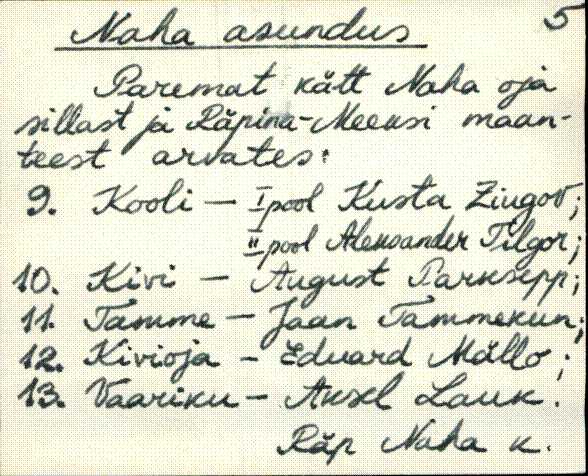 5
Naha asundus
Paremat kätt Naha oja
sillast ja Räpina-Meeksi maan-
teest arvates:
9. Kooli – I pool Kusta Zingov;
II pool Aleksander Tilgor;
10. Kivi – August Parksepp;
11. Tamme – Jaan Tammekun;
12. Kivioja – Eduard Mällo;
13. Vaariku – Aksel Lauk.
Räp Naha k.